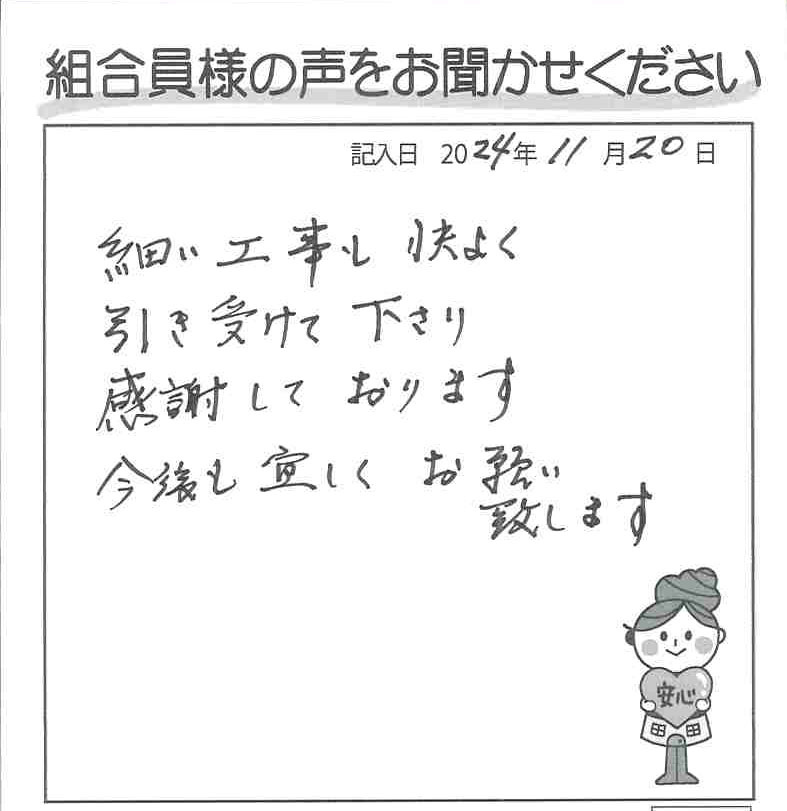 組合員様の声をお聞かせください
記入日 2024年11月20日
細い工事も快よく
引き受けて下さり
感謝しております
今後も宜しくお願い
致します
安心